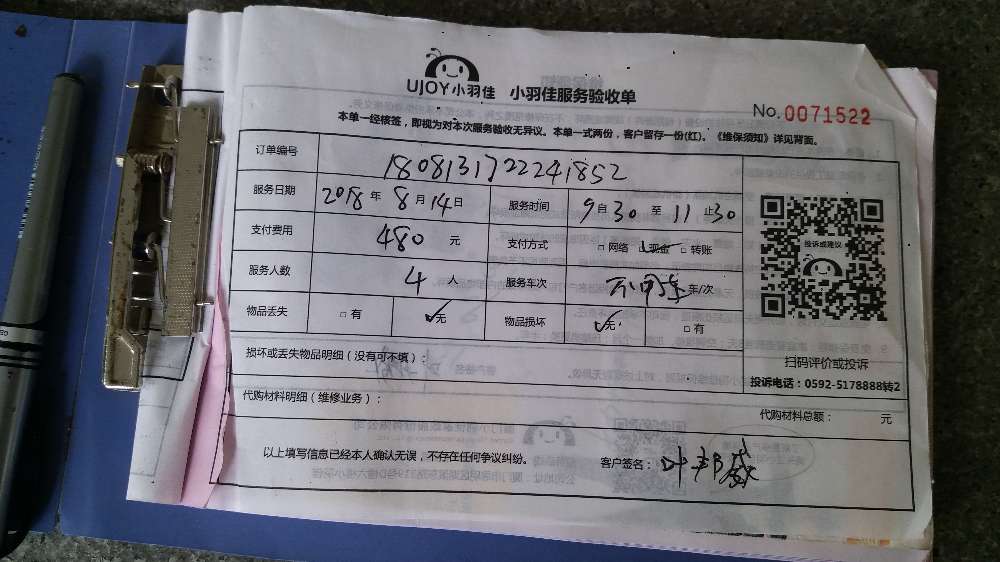 UJOY小羽佳 小羽佳服务验收单
No.0071522
本单一经核签，即视为对本次服务验收无异议。本单一式两份，客户留存一份(红)。《维保须知》详见背面。
订单编号 18081317222241852
服务日期 2018年 8月14日 服务时间 9自30至11止30
支付费用 480 元 支付方式 □网络 □现金 □转账
服务人数 4 人 服务车次 车/次
物品丢失 □有 ✓无 物品损坏 ✓无 □有
投诉或建议
扫码评价或投诉
投诉电话：0592-5178888转2
损坏或丢失物品明细（没有可不填）：
代购材料明细（维修业务）：
代购材料总额： 元
以上填写信息已经本人确认无误，不存在任何争议纠纷。 客户签名：叶邦威